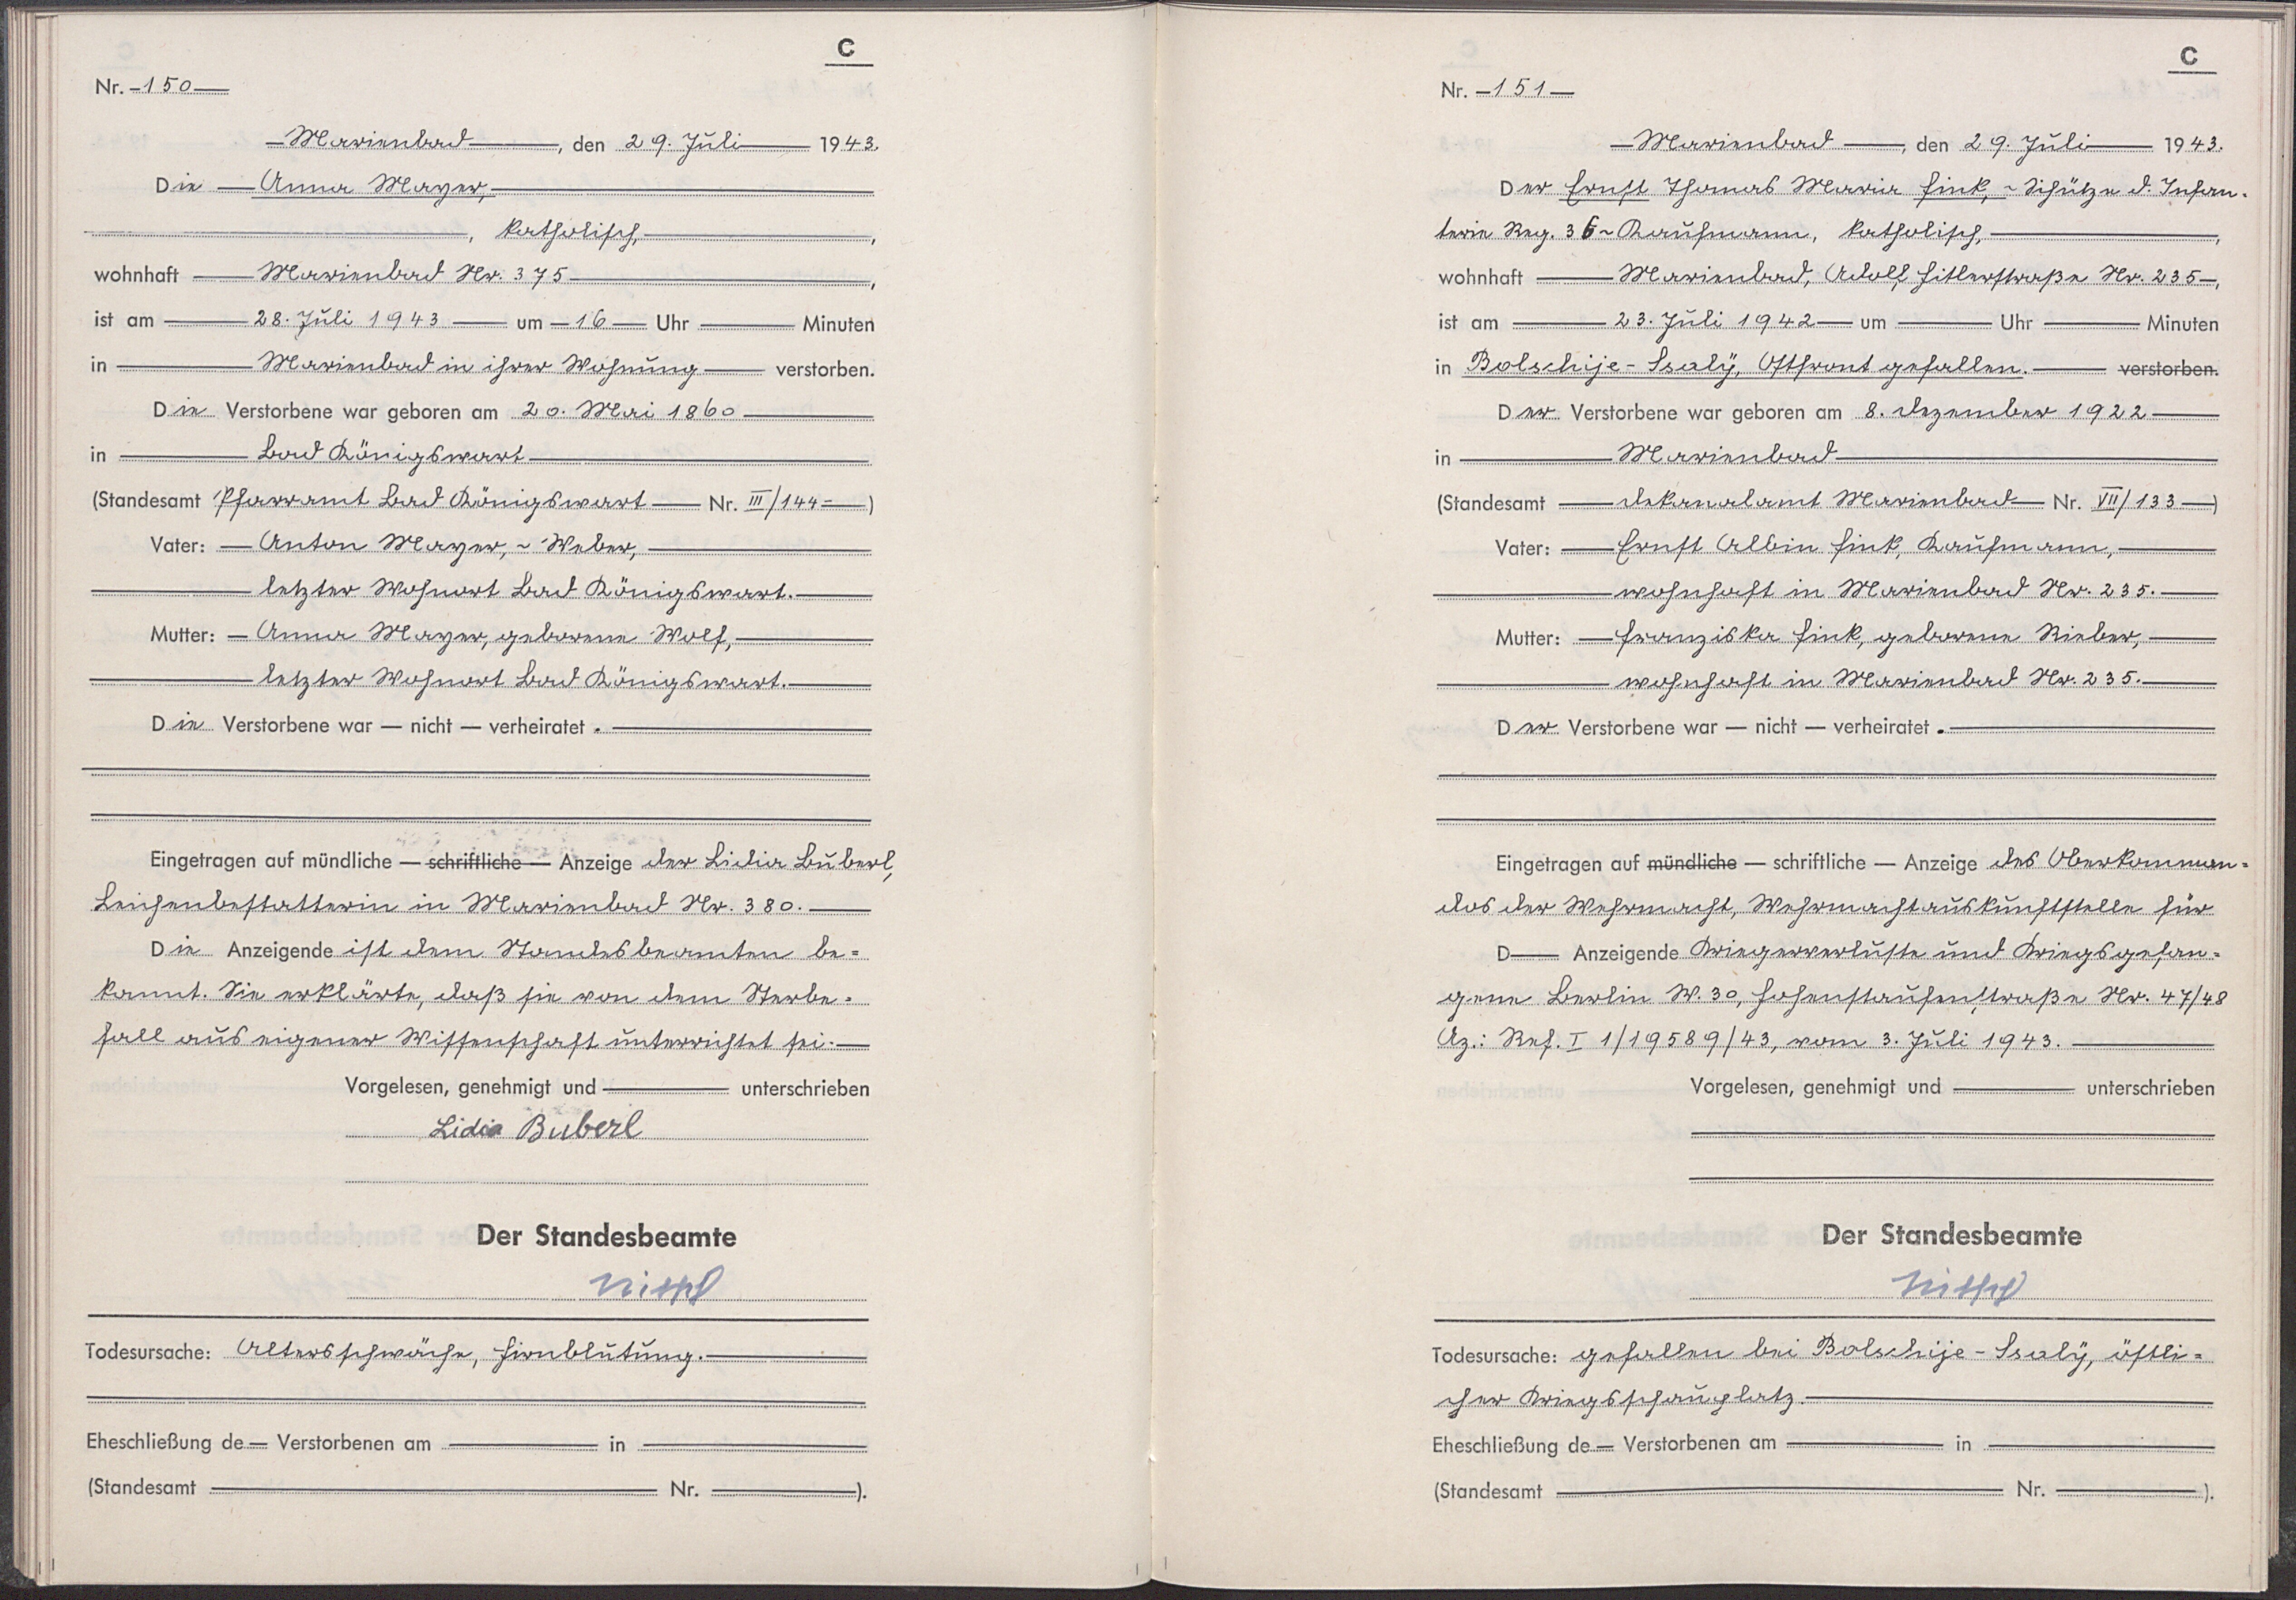 C
Nr. 150
Marienbad, den 29. Juli 1943.
Die Anna Mayer,
, katholisch,
wohnhaft Marienbad Nr. 375,
ist am 28. Juli 1943 um 16 Uhr Minuten
in Marienbad in ihrer Wohnung verstorben.
Die Verstorbene war geboren am 20. Mai 1860
in Bad Königswart
(Standesamt Pfarramt Bad Königswart Nr. III/144)
Vater: Anton Mayer, ~ Weber,
letzter Wohnort Bad Königswart.
Mutter: Anna Mayer, geborene Wolf,
letzter Wohnort Bad Königswart.
Die Verstorbene war — nicht — verheiratet.
Eingetragen auf mündliche — schriftliche — Anzeige der Lidia Buberl,
Leichenbestatterin in Marienbad Nr. 380.
Die Anzeigende ist dem Standesbeamten be=
kannt. Sie erklärte, daß sie von dem Sterbe=
fall aus eigener Wissenschaft unterrichtet sei.
Vorgelesen, genehmigt und unterschrieben
Lidia Buberl
Der Standesbeamte
Todesursache: Altersschwäche, Hirnblutung.
Eheschließung de Verstorbenen am in
(Standesamt Nr. ).
C
Nr. 151
Marienbad, den 29. Juli 1943.
Der Ernst Thomas Maria Fink, ~ Schütze d. Infan=
terie Reg. 36 ~ Kaufmann, katholisch,
wohnhaft Marienbad, Adolf Hitlerstraße Nr. 235,
ist am 23. Juli 1942 um Uhr Minuten
in Bolschije-Ssaly, Ostfront gefallen. verstorben.
Der Verstorbene war geboren am 8. Dezember 1922
in Marienbad
(Standesamt Dekanalamt Marienbad Nr. VII/133)
Vater: Ernst Albin Fink, Kaufmann,
wohnhaft in Marienbad Nr. 235.
Mutter: Franziska Fink, geborene Rieber,
wohnhaft in Marienbad Nr. 235.
Der Verstorbene war — nicht — verheiratet.
Eingetragen auf mündliche — schriftliche — Anzeige des Oberkomman=
dos der Wehrmacht, Wehrmachtauskunftstelle für
D Anzeigende Kriegerverluste und Kriegsgefan=
gene Berlin W. 30, Hohenstaufenstraße Nr. 47/48
Az.: Ref. I 1/19589/43, vom 3. Juli 1943.
Vorgelesen, genehmigt und unterschrieben
Der Standesbeamte
Todesursache: gefallen bei Bolschije-Ssaly, östli=
cher Kriegsschauplatz.
Eheschließung de Verstorbenen am in
(Standesamt Nr. ).